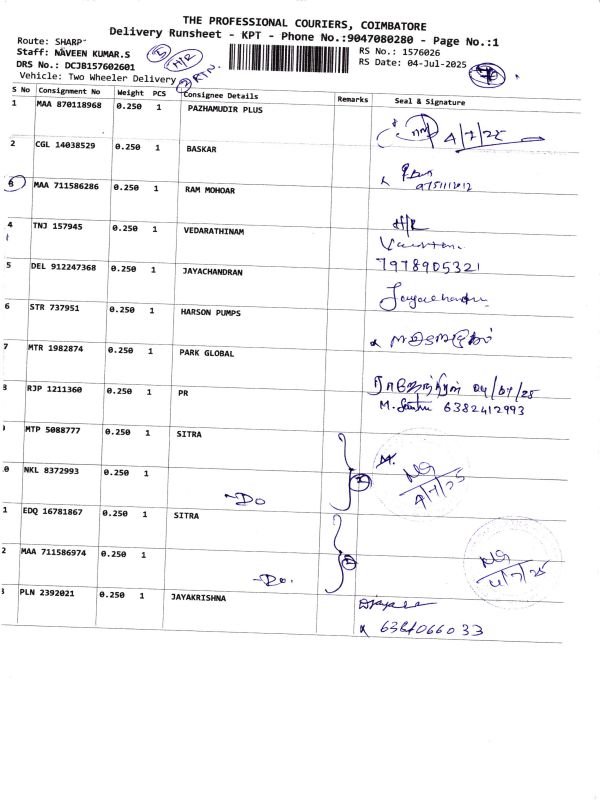 THE PROFESSIONAL COURIERS, COIMBATORE
Delivery Runsheet - KPT - Phone No.:9047080280 - Page No.:1
Route: SHARP
Staff: NAVEEN KUMAR.S
DRS No.: DCJB157602601
Vehicle: Two Wheeler Delivery
RS No.: 1576026
RS Date: 04-Jul-2025
H/R
RTN.
S No Consignment No Weight PCS Consignee Details Remarks Seal & Signature
1 MAA 870118968 0.250 1 PAZHAMUDIR PLUS 4/7/25
2 CGL 14038529 0.250 1 BASKAR
3 MAA 711586286 0.250 1 RAM MOHOAR
4 TNJ 157945 0.250 1 VEDARATHINAM H/R
7978905321
5 DEL 912247368 0.250 1 JAYACHANDRAN Jayachandran
6 STR 737951 0.250 1 HARSON PUMPS
7 MTR 1982874 0.250 1 PARK GLOBAL 04/07/25
8 RJP 1211360 0.250 1 PR 6382412993
MTP 5088777 0.250 1 SITRA
0 NKL 8372993 0.250 1 -Do 4/7/25
1 EDQ 16781867 0.250 1 SITRA
2 MAA 711586974 0.250 1 -Do. 4/7/25
3 PLN 2392021 0.250 1 JAYAKRISHNA